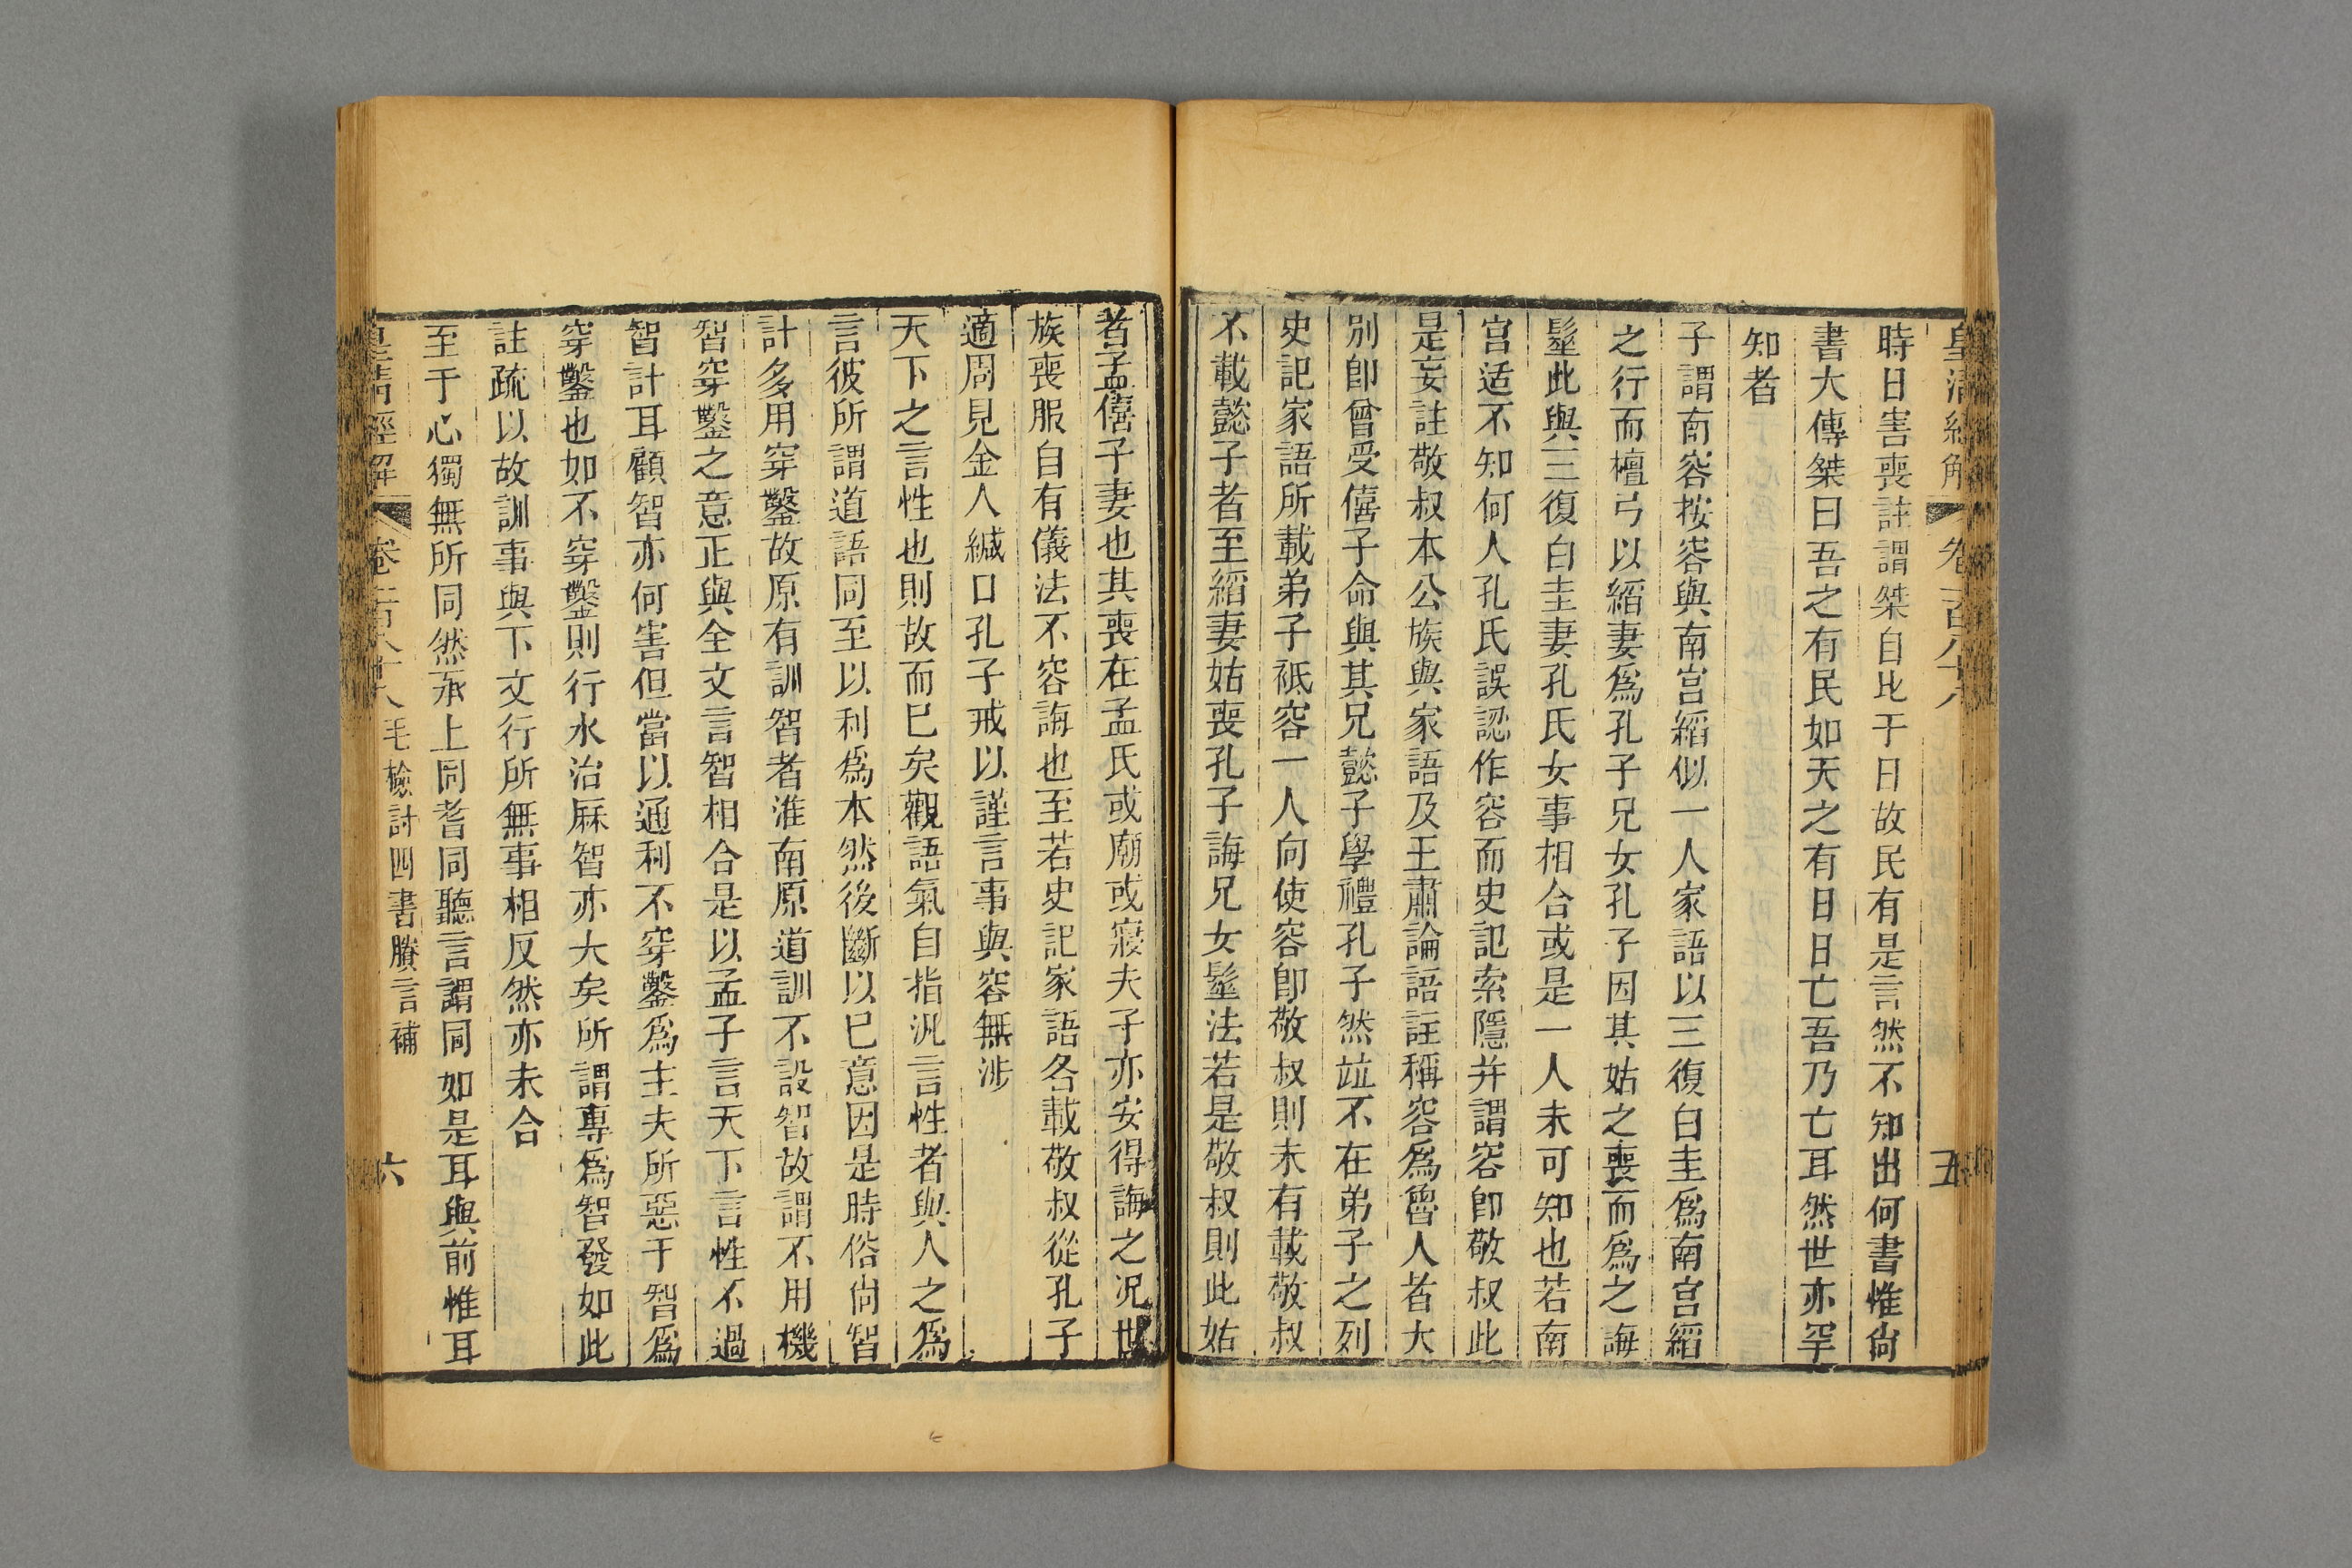 皇清經解 卷百八十八 五
時日害喪註謂桀自比于日故民有是言然不知出何書惟尙
書大傳桀曰吾之有民如天之有日日亡吾乃亡耳然世亦罕
知者
子謂南容按容與南宮縚似一人家語以三復白圭爲南宮縚
之行而檀弓以縚妻爲孔子兄女孔子因其姑之喪而爲之誨
髽此與三復白圭妻孔氏女事相合或是一人未可知也若南
宮适不知何人孔氏誤認作容而史記索隱并謂容卽敬叔此
是妄註敬叔本公族與家語及王肅論語註稱容爲魯人者大
別卽曾受僖子命與其兄懿子學禮孔子然竝不在弟子之列
史記家語所載弟子祗容一人向使容卽敬叔則未有載敬叔
不載懿子者至縚妻姑喪孔子誨兄女髽法若是敬叔則此姑
者孟僖子妻也其喪在孟氏或廟或寢夫子亦安得誨之况世
族喪服自有儀法不容誨也至若史記家語各載敬叔從孔子
適周見金人緘口孔子戒以謹言事與容無涉
天下之言性也則故而已矣觀語氣自指汎言性者與人之爲
言彼所謂道語同至以利爲本然後斷以已意因是時俗尙智
計多用穿鑿故原有訓智者淮南原道訓不設智故謂不用機
智穿鑿之意正與全文言智相合是以孟子言天下言性不過
智計耳顧智亦何害但當以通利不穿鑿爲主夫所惡于智爲
穿鑿也如不穿鑿則行水治厤智亦大矣所謂專爲智發如此
註疏以故訓事與下文行所無事相反然亦未合
至于心獨無所同然承上同耆同聽言謂同如是耳與前惟耳
皇清經解 卷百八十八 毛檢討四書賸言補 六